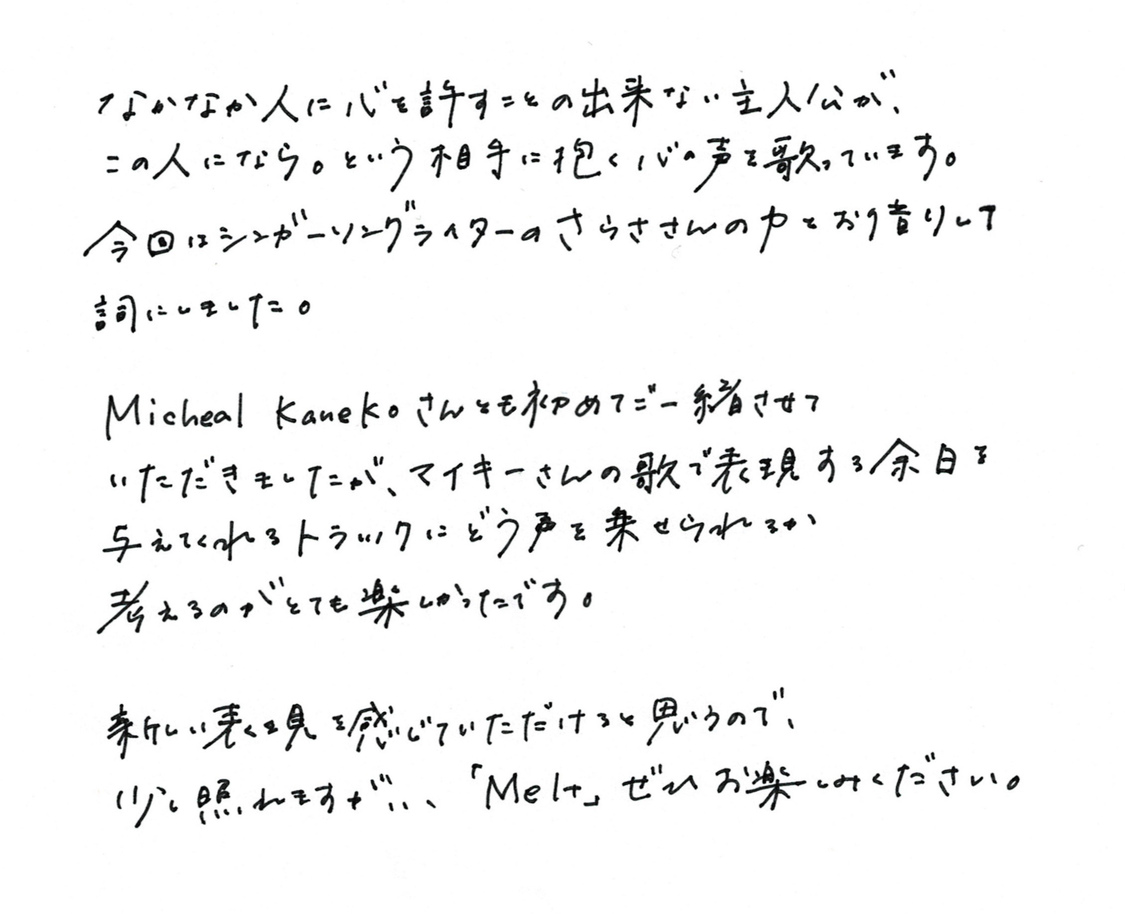 なかなか人に心を許すことの出来ない主人公が、
この人になら。という相手に抱く心の声を歌っています。
今回はシンガーソングライターのさらささんの力をお借りして
詞にしました。
Micheal Kanekoさんとも初めてご一緒させて
いただきましたが、マイキーさんの歌で表現する余白を
与えてくれるトラックにどう声を乗せられるか
考えるのがとても楽しかったです。
新しい表現を感じていただけると思うので、
少し照れますが、、「Melt」ぜひお楽しみください。